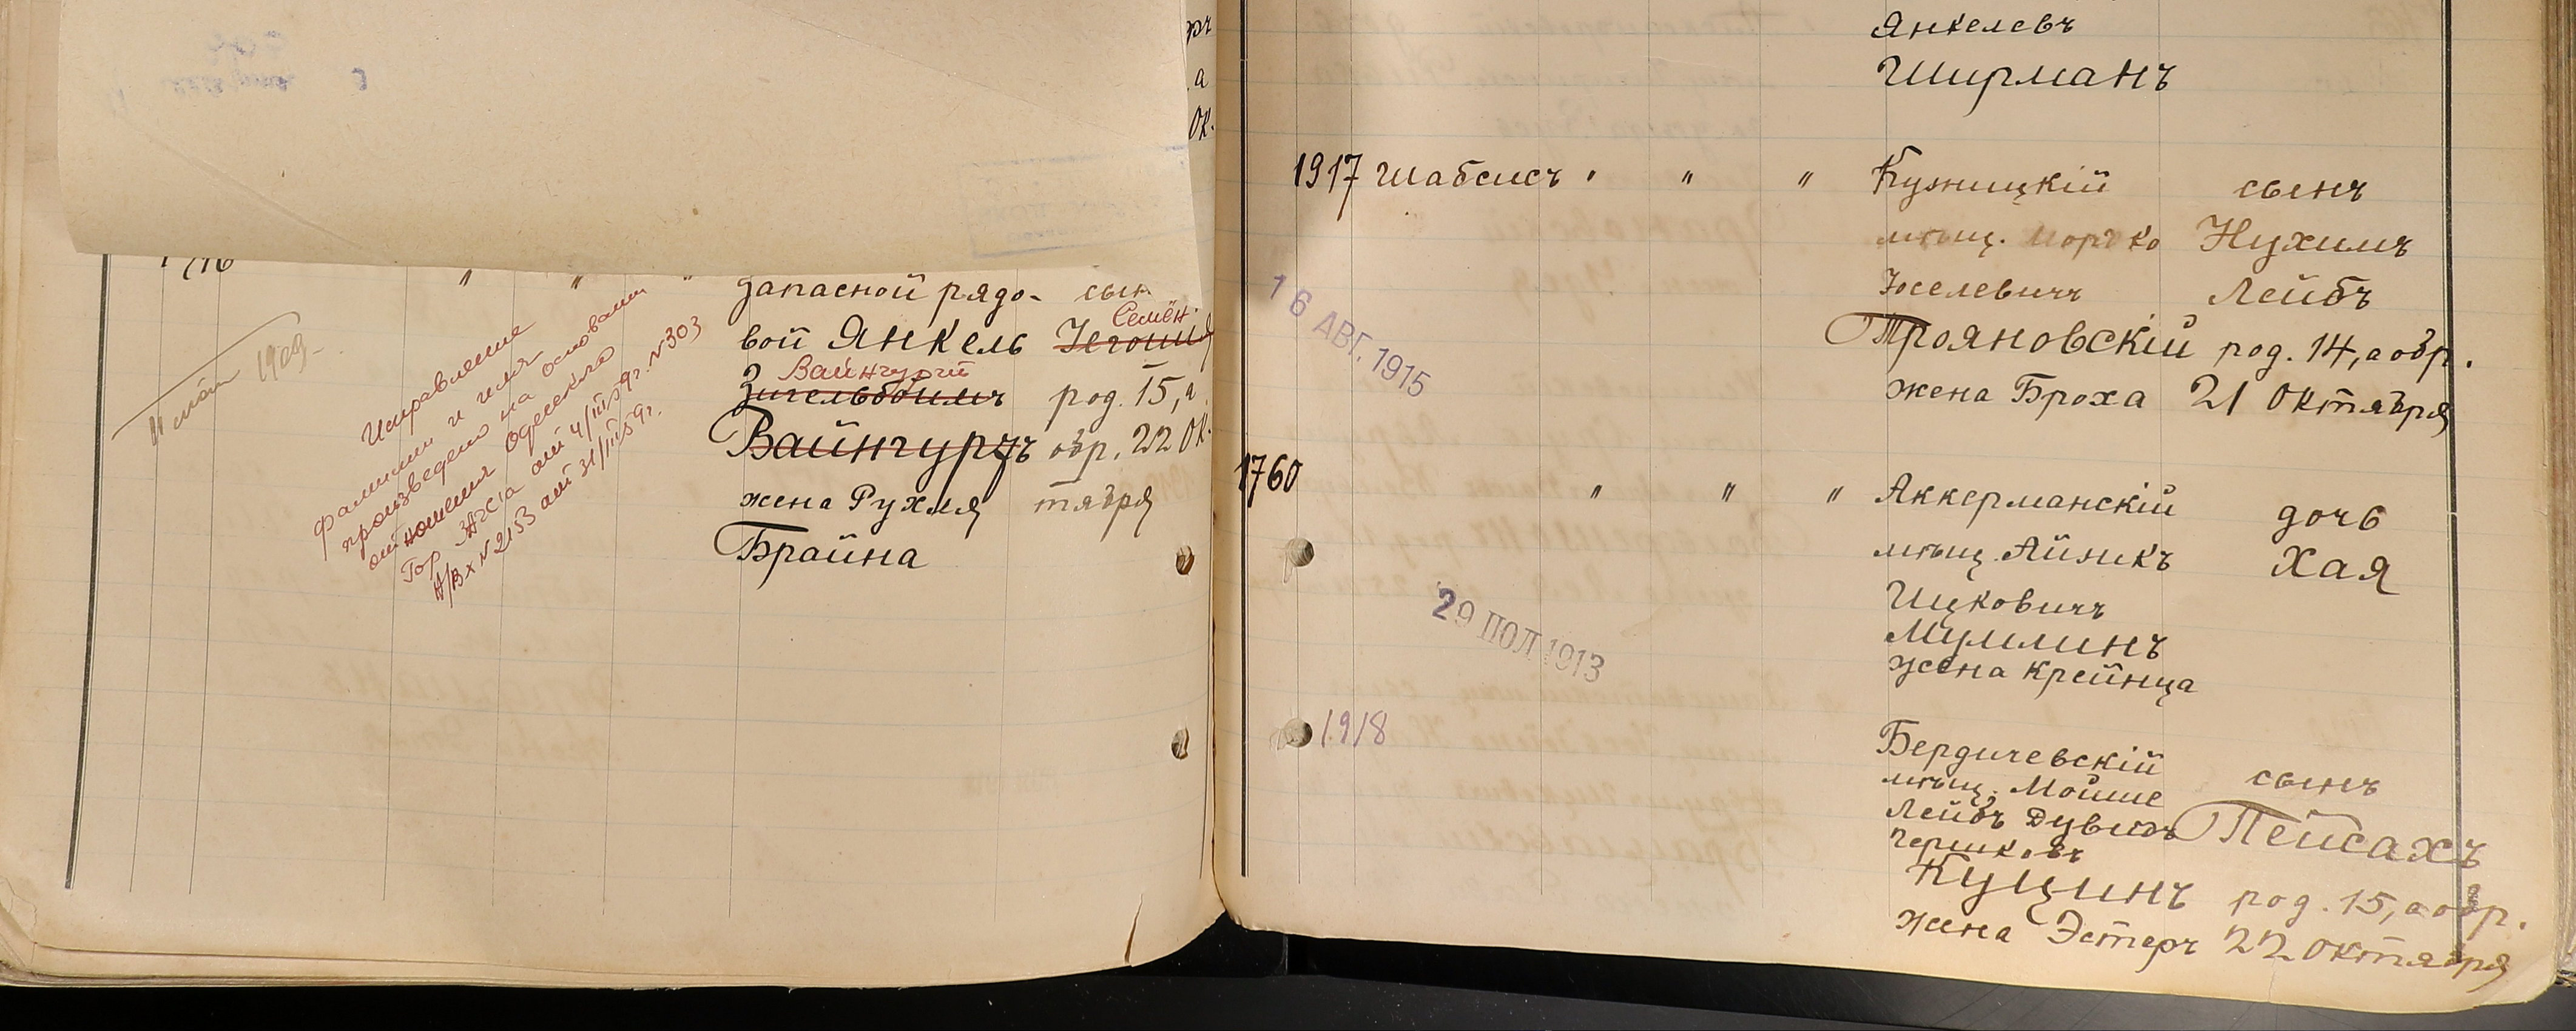 1916 " " "
запасной рядо- сын
вой Янкель Иегошия Семён
Зигельбоймъ Вайнгурт род. 15, а
Вайнгуртъ обр. 22 Ок-
жена Рухля тября
Брайна
11 мая 1909
Исправление
фамилии и имя
произведено на основании
отношения Одесского
Гор ЗАГСа от 4/III 59г. №303
А/Вх №2153 от 31/III 59г.
Янкелевъ
Ширманъ
1917 Шабсисъ " " " Кузницкій сынъ
мѣщ. Мортко Нухимъ
Іоселевичъ Лейбъ
Трояновскій род. 14, а обр.
жена Броха 21 Октября
16 АВГ. 1915
1760 " " " Аккерманскій дочь
мѣщ. Айзикъ Хая
Ицковичъ
Мулминъ
жена Крейнца
29 ІЮЛ 1913
1918 Бердичевскій сынъ
мѣщ. Мойше
Лейбъ Дувидъ Пейсахъ
Гершковъ
Куцинъ род. 15, а обр.
жена Эстеръ 22 Октября